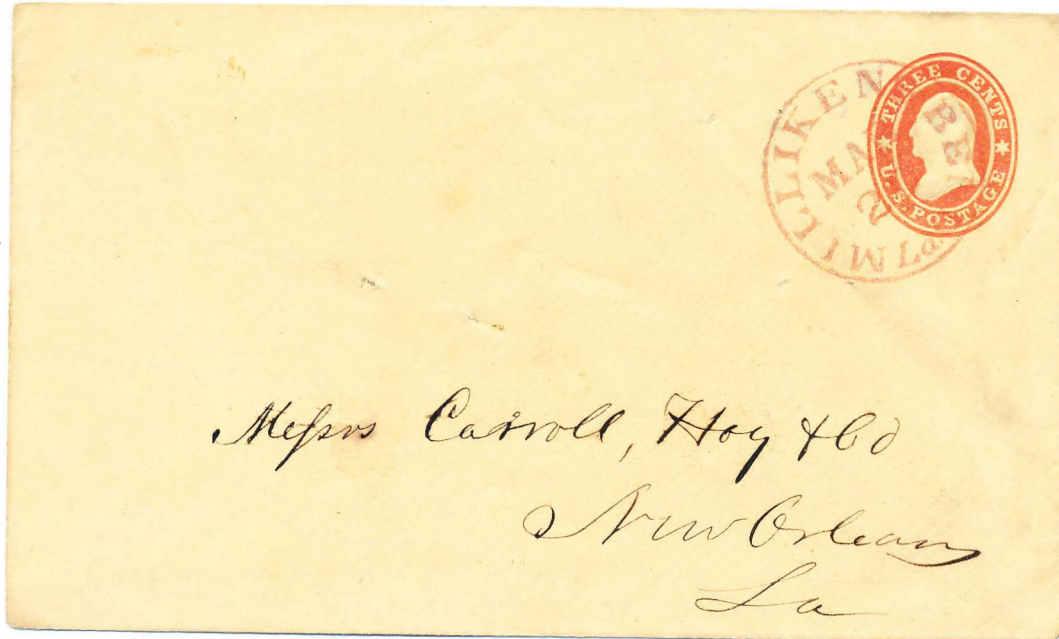 MILLIKEN BEN
La.
MA
2
THREE CENTS
U.S. POSTAGE
Messrs Carroll, Hoy & Co
New Orleans
La